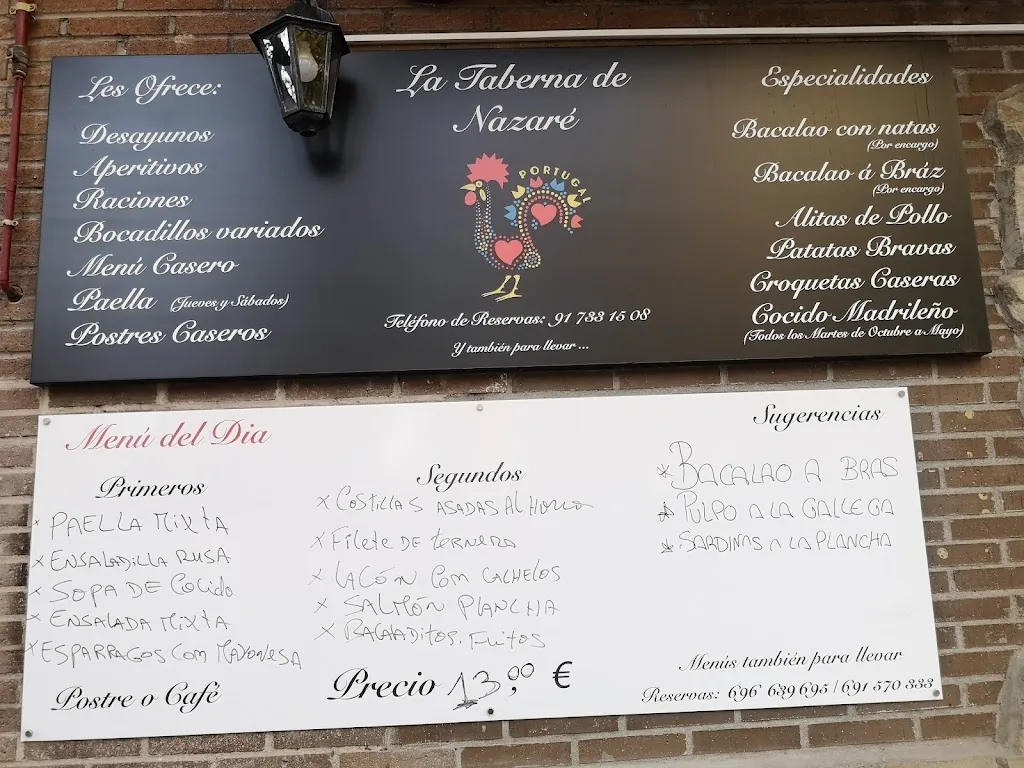 Les Ofrece:
Desayunos
Aperitivos
Raciones
Bocadillos variados
Menú Casero
Paella (Jueves y Sábados)
Postres Caseros
La Taberna de
Nazaré
PORTUGAL
Teléfono de Reservas: 91 733 15 08
Y también para llevar ...
Especialidades
Bacalao con natas
(Por encargo)
Bacalao á Bráz
(Por encargo)
Alitas de Pollo
Patatas Bravas
Croquetas Caseras
Cocido Madrileño
(Todos los Martes de Octubre a Mayo)
Menú del Dia
Primeros
x PAELLA MIXTA
x ENSALADILLA RUSA
x SOPA DE COCIDO
x ENSALADA MIXTA
x ESPARRAGOS COM MAYONESA
Postre o Café
Segundos
x COSTILLAS ASADAS AL HORNO
x FILETE DE TERNERA
x LACÓN COM CACHELOS
x SALMÓN PLANCHA
x BACALADITOS. FRITOS
Precio 13,00 €
Sugerencias
* BACALAO A BRAS
* PULPO A LA GALLEGA
* SARDINAS A LA PLANCHA
Menús también para llevar
Reservas: 696 639 695 / 691 570 333